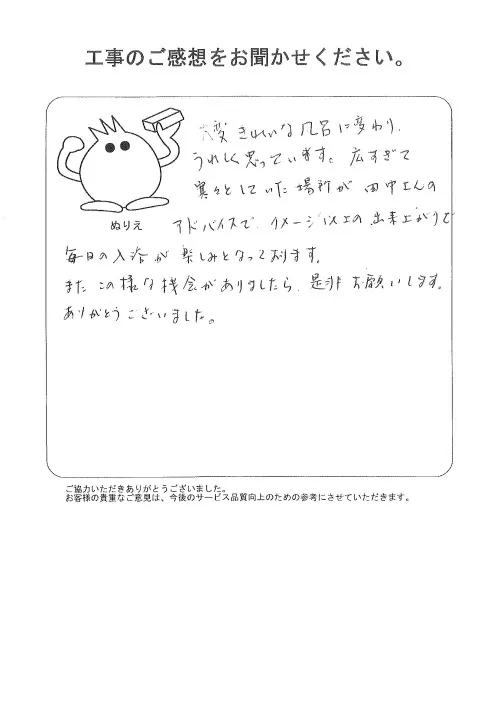 工事のご感想をお聞かせください。
大変きれいな風呂に変わり、
うれしく思っています。広すぎて
寒々としていた場所が田中さんの
ぬりえ
アドバイスで、イメージ以上の出来上がりで
毎日の入浴が楽しみとなっております。
またこの様な機会がありましたら、是非お願いします。
ありがとうございました。
ご協力いただきありがとうございました。
お客様の貴重なご意見は、今後のサービス品質向上のための参考にさせていただきます。